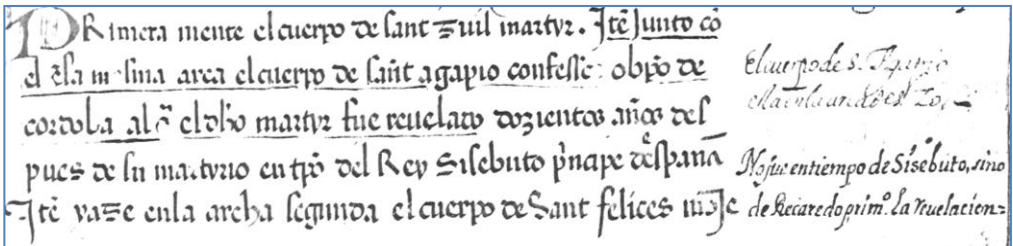 PRimera mente el cuerpo de sant zuil martyr. Itē Junto cō
el ē la mesma arca el cuerpo de sāt agapio confesse: obpō de
cordoba al q̄ el dho martyr fue reuelato dozientos años des
pues de su martyrio en tpō del Rey Sisebuto pͥncipe despana
Itē yaze enla archa segunda el cuerpo de Sant felices mōje
El cuerpo de S. Agapio
esta en la arca de S. Zoil
No fue en tiempo de Sisebuto, sino
de Recaredo primº. La reuelacion=